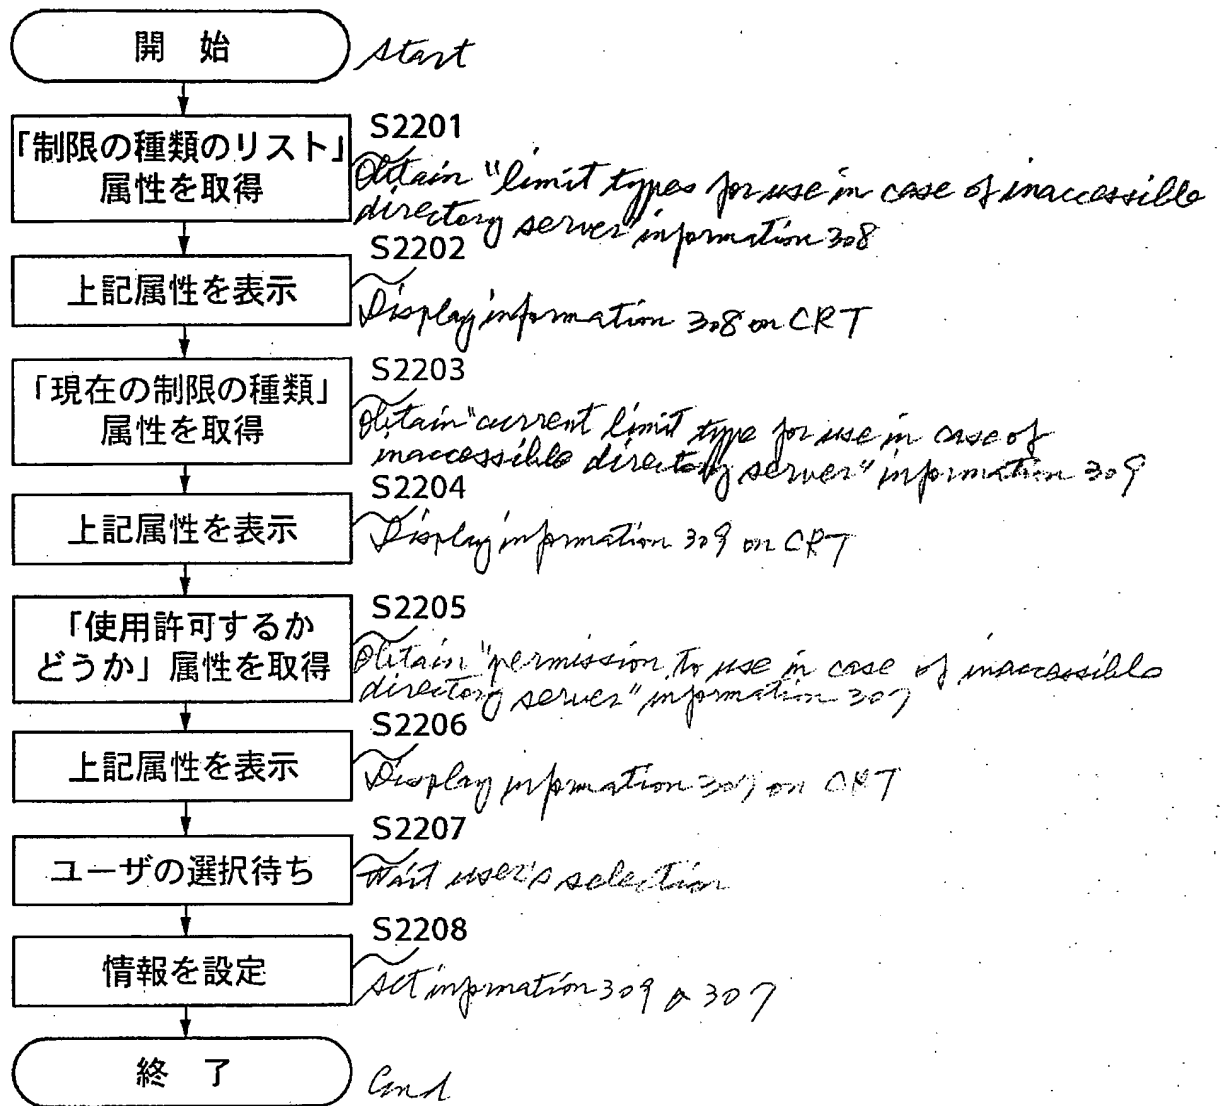 開 始
Start
「制限の種類のリスト」
属性を取得
S2201
Obtain "limit types for use in case of inaccessible
directory server" information 308
上記属性を表示
S2202
Display information 308 on CRT
「現在の制限の種類」
属性を取得
S2203
Obtain "current limit type for use in case of
inaccessible directory server" information 309
上記属性を表示
S2204
Display information 309 on CRT
「使用許可するか
どうか」属性を取得
S2205
Obtain "permission to use in case of inaccessible
directory server" information 307
上記属性を表示
S2206
Display information 307 on CRT
ユーザの選択待ち
S2207
Wait user's selection
情報を設定
S2208
Set information 309 & 307
終 了
End